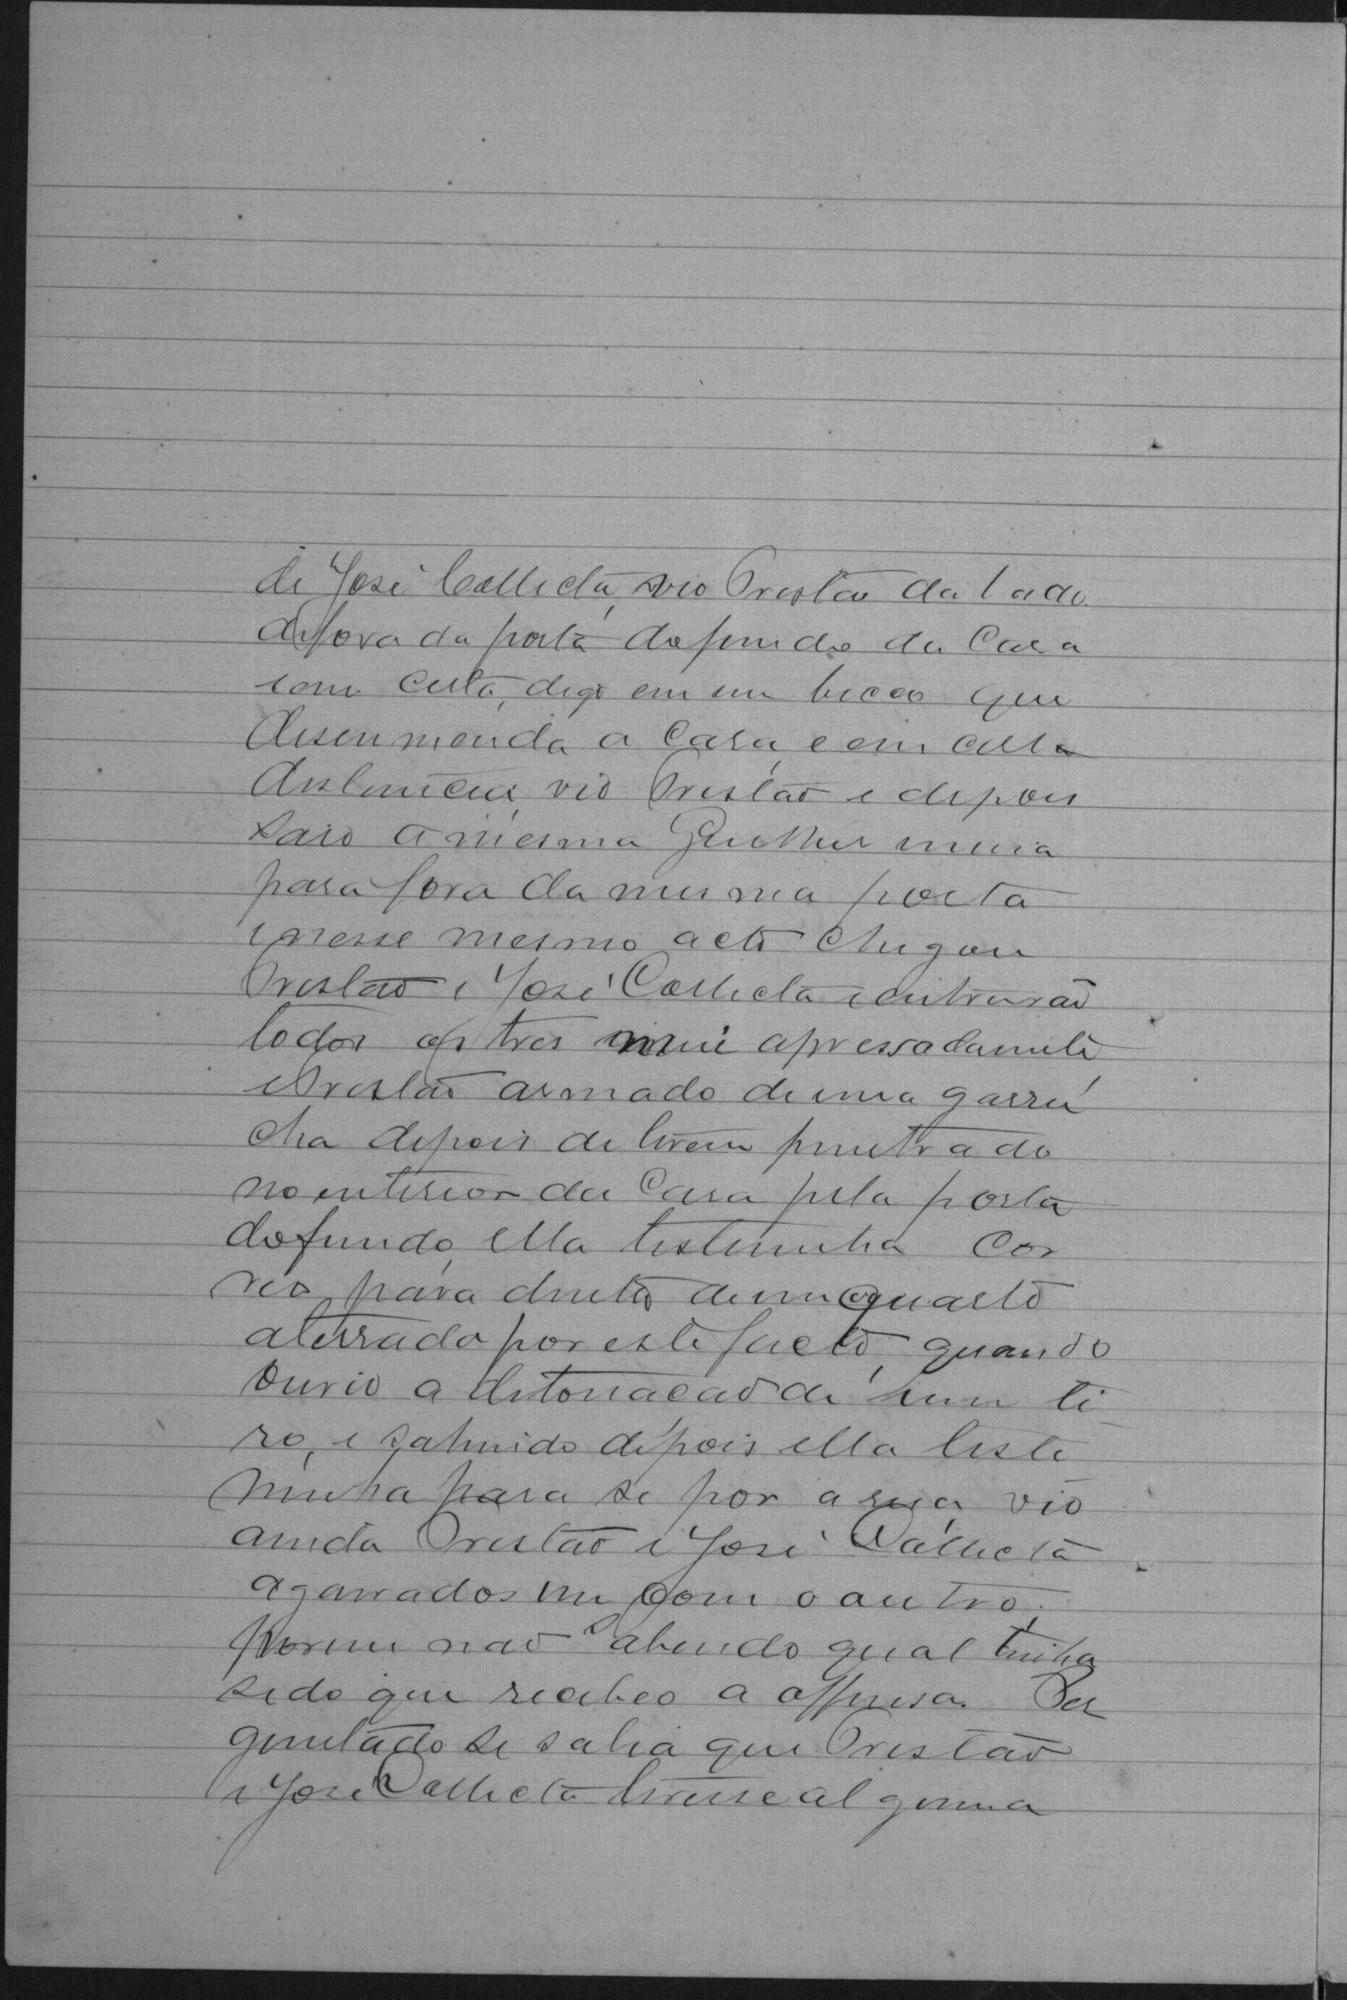 de José Collecta, vio Tristão da lado
defora da porta do fundo da Casa
com certa, digo em um becco que
desenmenda a Casa, e em certa
distancia, vio Tristão e depois
saio a mesma mulher
para fora da mesma porta
e nesse mesmo acto chegou
Tristão e José Collecta e entrarão
todos os tres mui apressadamente
e Tristão armado de uma garru
cha depois de terem penetrado
no enterior da Casa pela porta
do fundo, ella testemunha Cor
reo para dentro de um quarto
aterrado por este facto, quando
ouvio a detonacaõ de um ti
ro, e sahindo depois ella teste
munha para se por a rua, vio
ainda Tristão e José Collecta
agarrados um com o outro,
porem não sabendo qual tinha
sido que recebeo a offensa. Per
guntado se sabia que Tristão
e José Collecta tivesse alguma